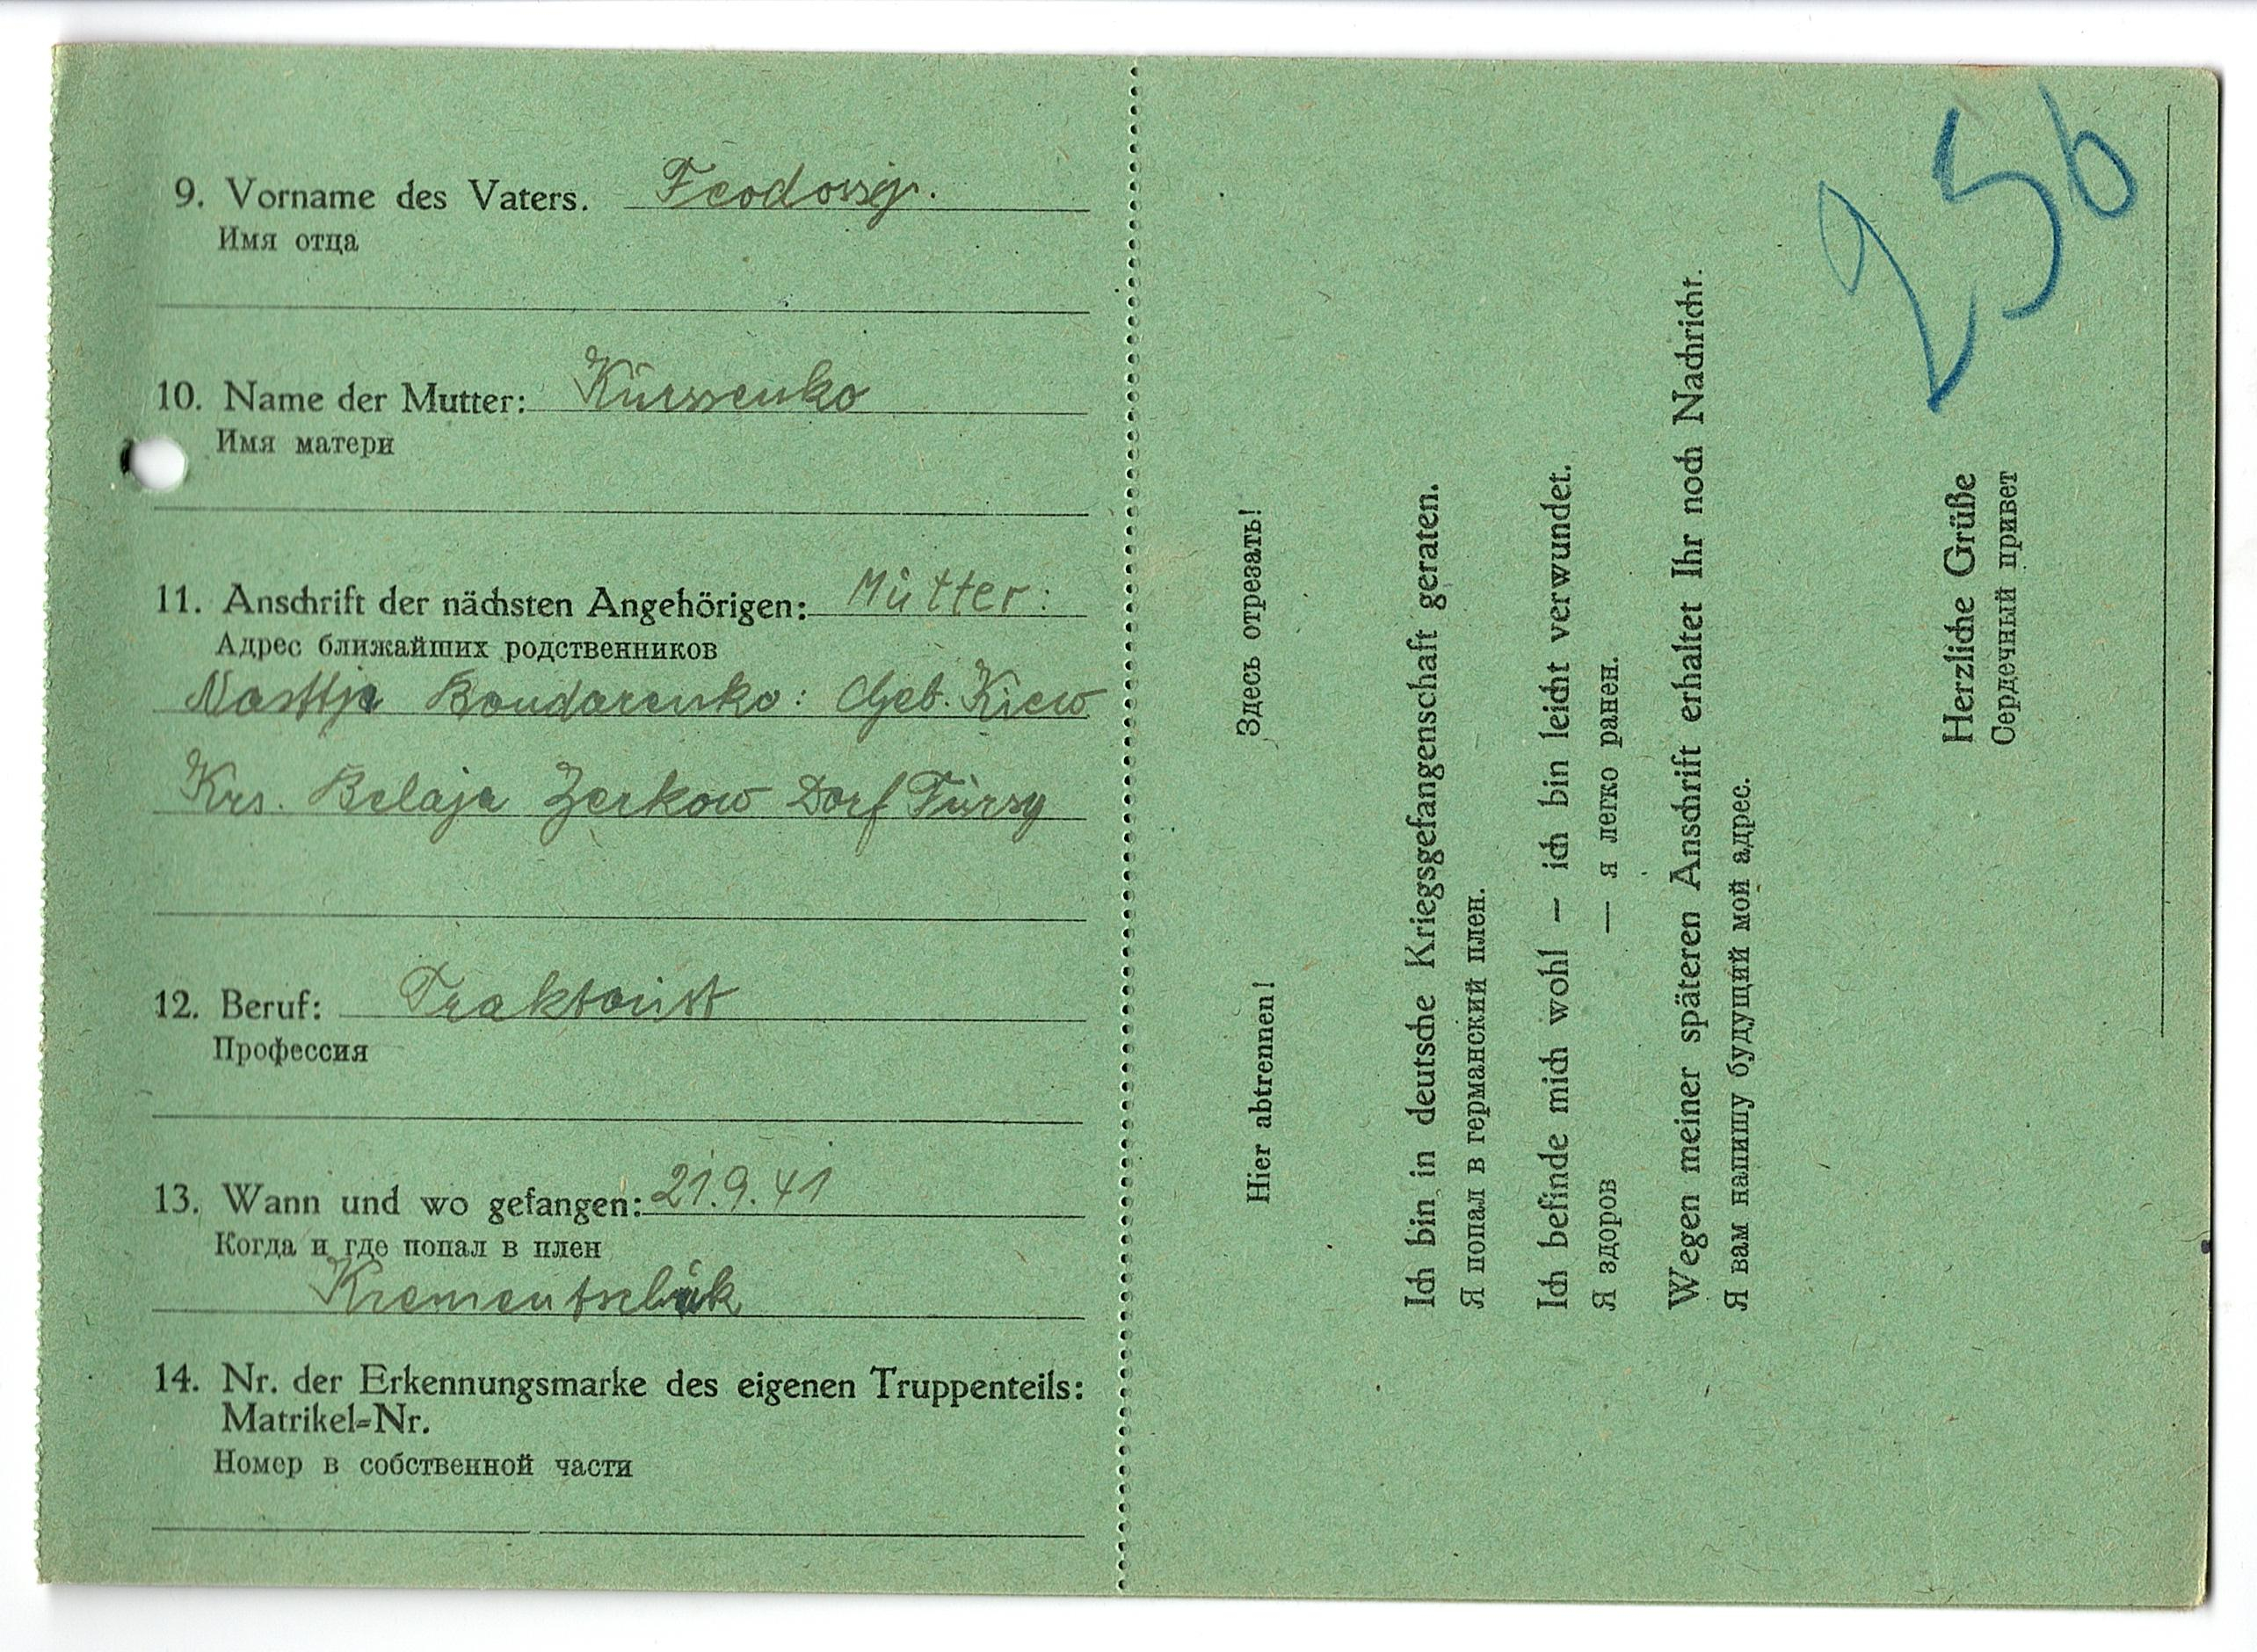 9. Vorname des Vaters. Feodossij.
Имя отца
10. Name der Mutter: Kürssenko
Имя матери
11. Anschrift der nächsten Angehörigen: Mütter:
Адрес ближайших родственников
Nasttja Bondarenko: Geb. Kiew
Krs. Belaja Zerkow Dorf Türsy
12. Beruf: Traktorist
Профессия
13. Wann und wo gefangen: 21.9.41
Когда и где попал в плен
Krementschuk
14. Nr. der Erkennungsmarke des eigenen Truppenteils:
Matrikel=Nr.
Номер в собственной части
Hier abtrennen! Здесь отрезать!
Ich bin in deutsche Kriegsgefangenschaft geraten.
Я попал в германский плен.
Ich befinde mich wohl — ich bin leicht verwundet.
Я здоров — я легко ранен.
Wegen meiner späteren Anschrift erhaltet Ihr noch Nachricht.
Я вам напишу будущий мой адрес.
Herzliche Grüße
Сердечный привет
256